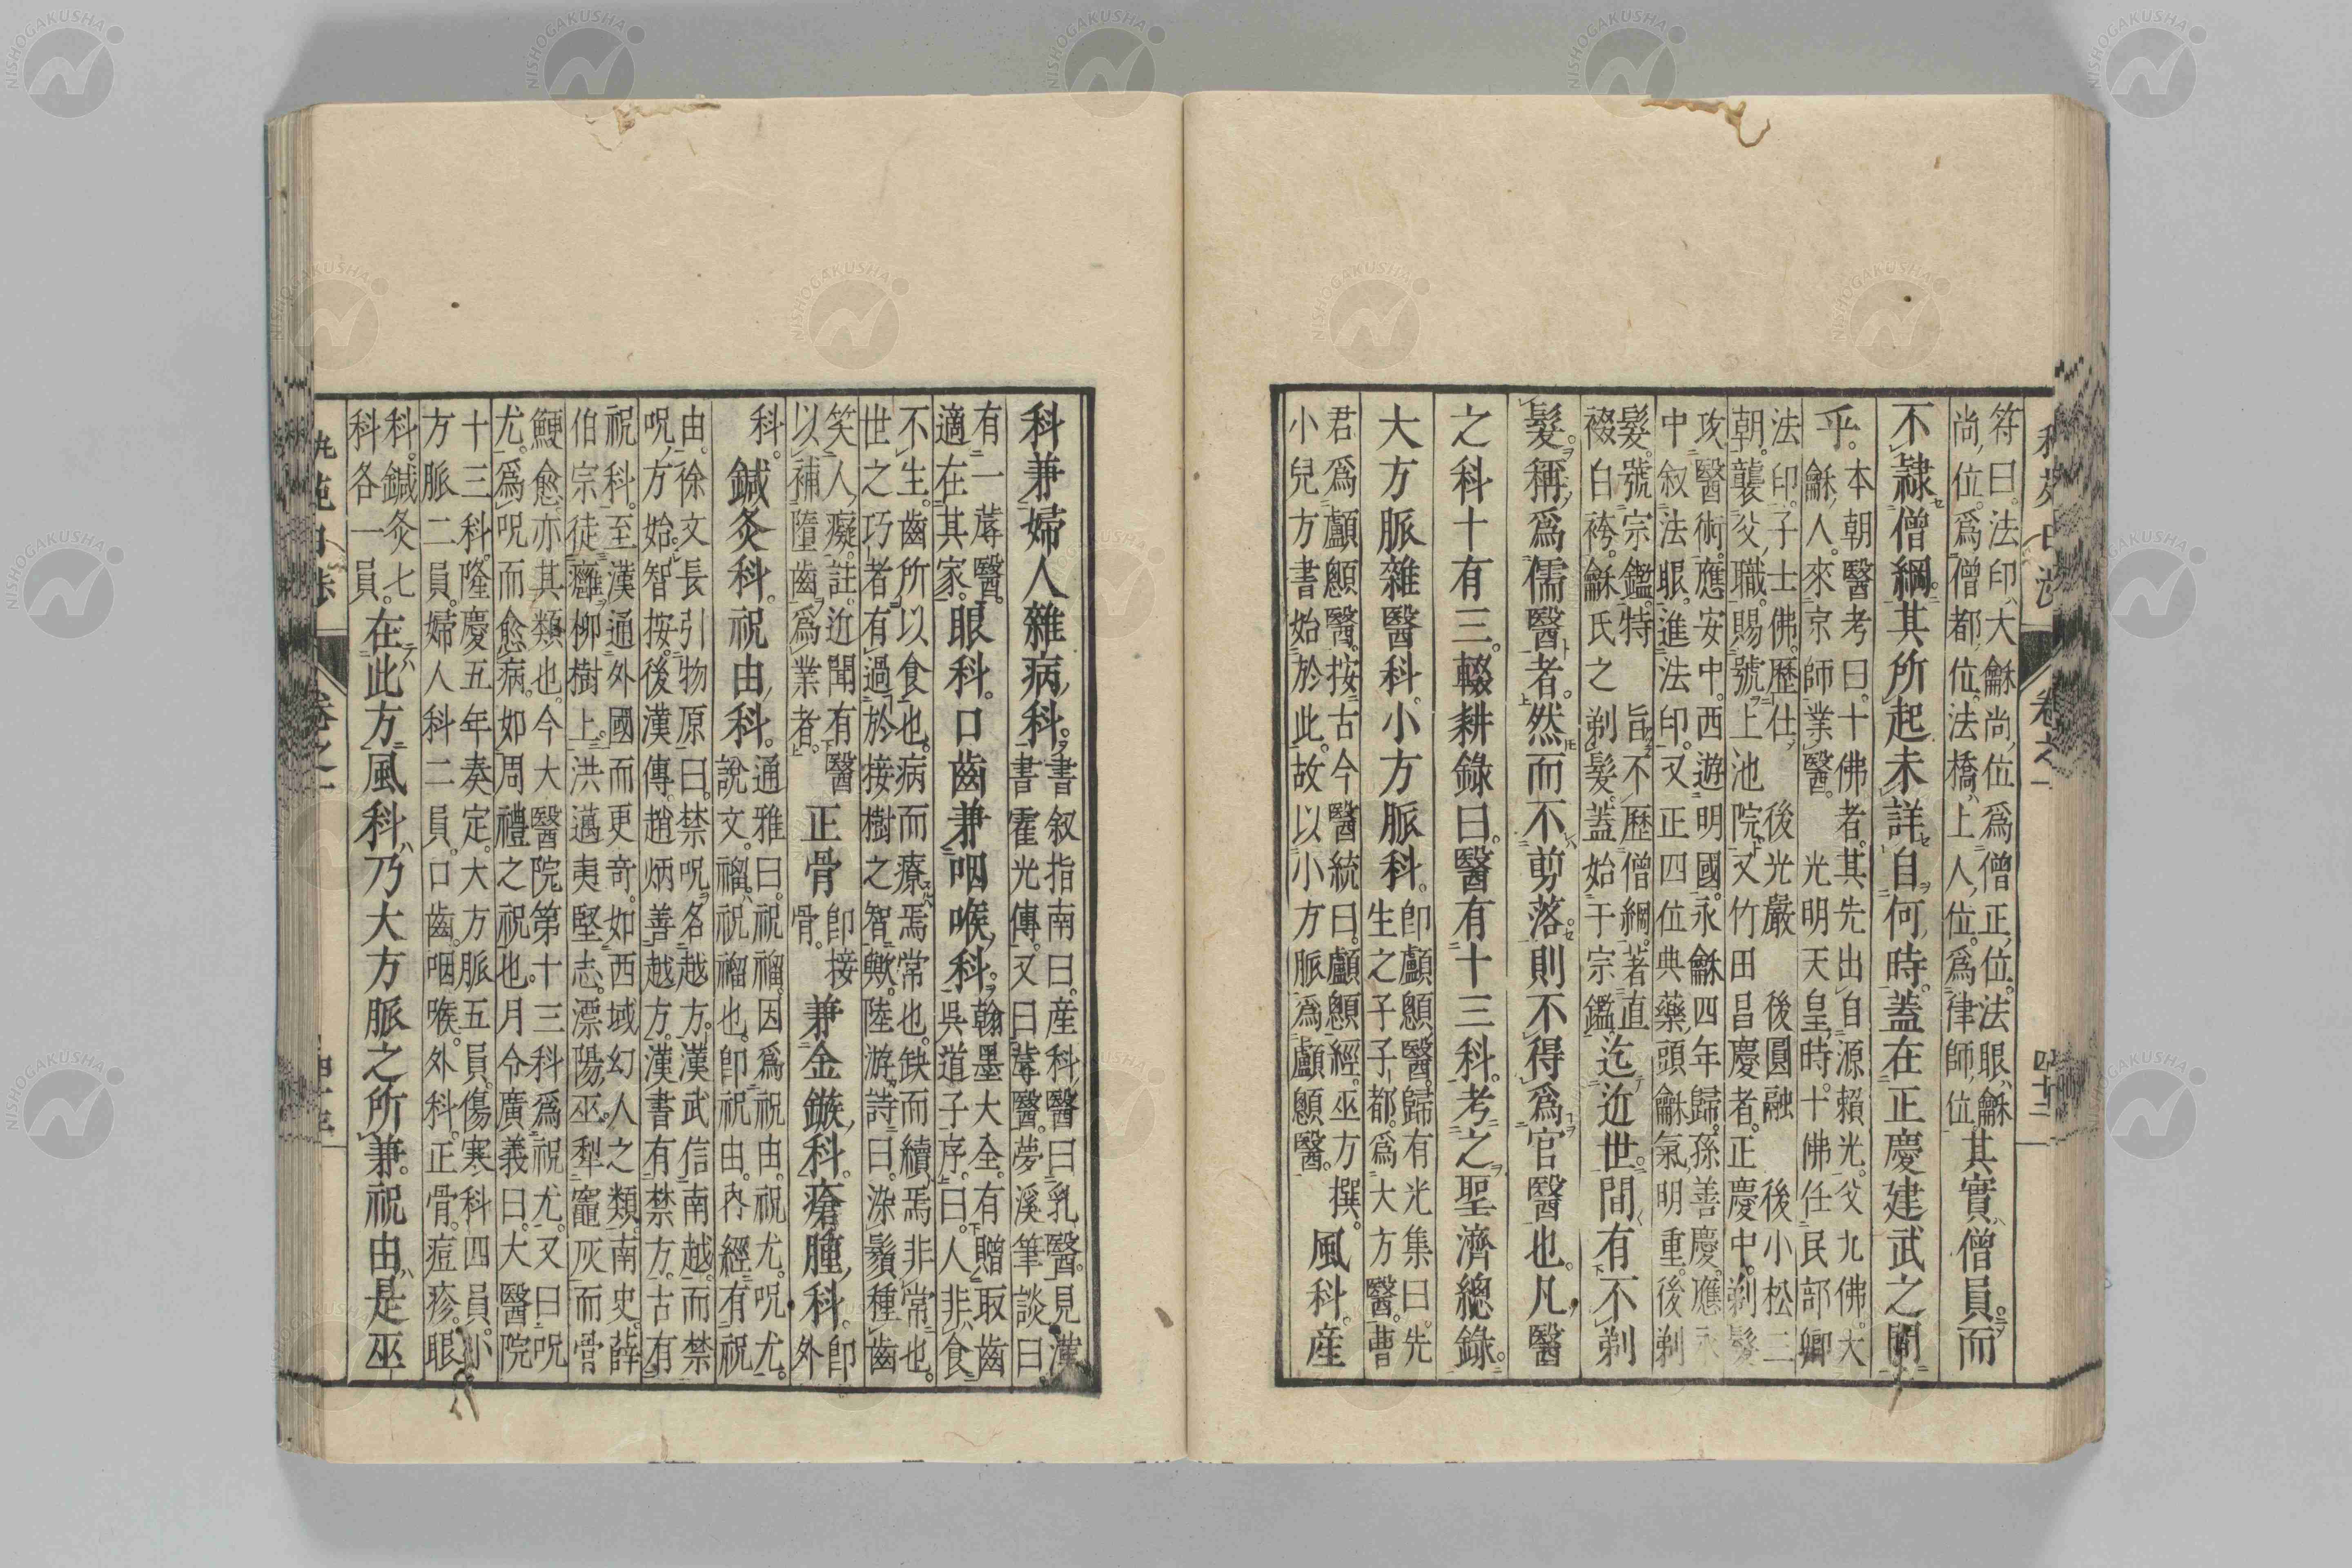 符曰。法印、大龢尚、位爲僧正、位。法眼、龢
尚、位。爲僧都、位。法橋、上人、位。爲律師、位。其實、僧員。而
不隷僧綱。其所起未詳自何時。蓋在正慶建武之間
乎。本朝醫考曰。十佛者。其先出自源賴光。父九佛。大
龢人。來京師業醫。光明天皇時。十佛任民部卿
法印。子士佛。歷仕後光嚴後圓融後小松三
朝。襲父職。賜號上池院。又竹田昌慶者。正慶中。剃髮
攻醫術。應安中。西遊明國。永龢四年歸。孫善慶。應永
中叙法眼。進法印。又正四位典藥頭龢氣明重。後剃
髮。號宗鑑。特旨不歷僧綱。著直
裰白袴。龢氏之剃髮。蓋始于宗鑑。迄近世。間有不剃
髮。稱爲儒醫者。然而不剪落。則不得爲官醫也。凡醫
之科十有三。輟耕錄曰。醫有十三科。考之聖濟總錄。
大方脈雜醫科。小方脈科。卽顱顖醫。歸有光集曰。先
生之子子都。爲大方醫。曹
君爲顱顖醫。按古今醫統曰。顱顖經。巫方撰。
小兒方書始於此。故以小方脈爲顱顖醫。風科。産
卷之一
四十三
科兼婦人雜病科。書叙指南曰。産科醫曰乳醫。見漢
書霍光傳。又曰蓐醫。夢溪筆談曰。
有一蓐醫。
適在其家。眼科。口齒兼咽喉科。翰墨大全。有贈取齒
吳道子序。曰。人非食
不生。齒所以食也。病而療焉常也。缺而續焉非常也。
世之巧者。有過於接樹之智歟。陸游詩曰。染鬚種齒
笑人癡。註。近聞有醫
以補墮齒爲業者。正骨卽接
骨。兼金鏃科。瘡腫科。卽外
科。鍼灸科。祝由科。通雅曰。祝禬。因爲祝由。祝尤。呪尤。
說文。禬、祝禬也。卽祝由。內經有祝
由。徐文長引物原曰。禁呪名越方。漢武信南越。而禁
呪方始。智按。後漢傳。趙炳善越方。漢書有禁方。古有
祝科。至漢通外國而更奇。如西域幻人之類。南史。薛
伯宗徒癰柳樹上。洪邁夷堅志。漂陽巫。犁竈灰而骨
鯁愈。亦其類也。今大醫院第十三科爲祝尤。又曰呪
尤。爲呪而愈病。如周禮之祝也。月令廣義曰。大醫院
十三科。隆慶五年奏定。大方脈五員。傷寒科四員。小
方脈二員。婦人科二員。口齒。咽喉。外科。正骨。痘疹。眼
科。鍼灸七
科各一員。在此方風科、乃大方脈之所兼。祝由、是巫
卷之一